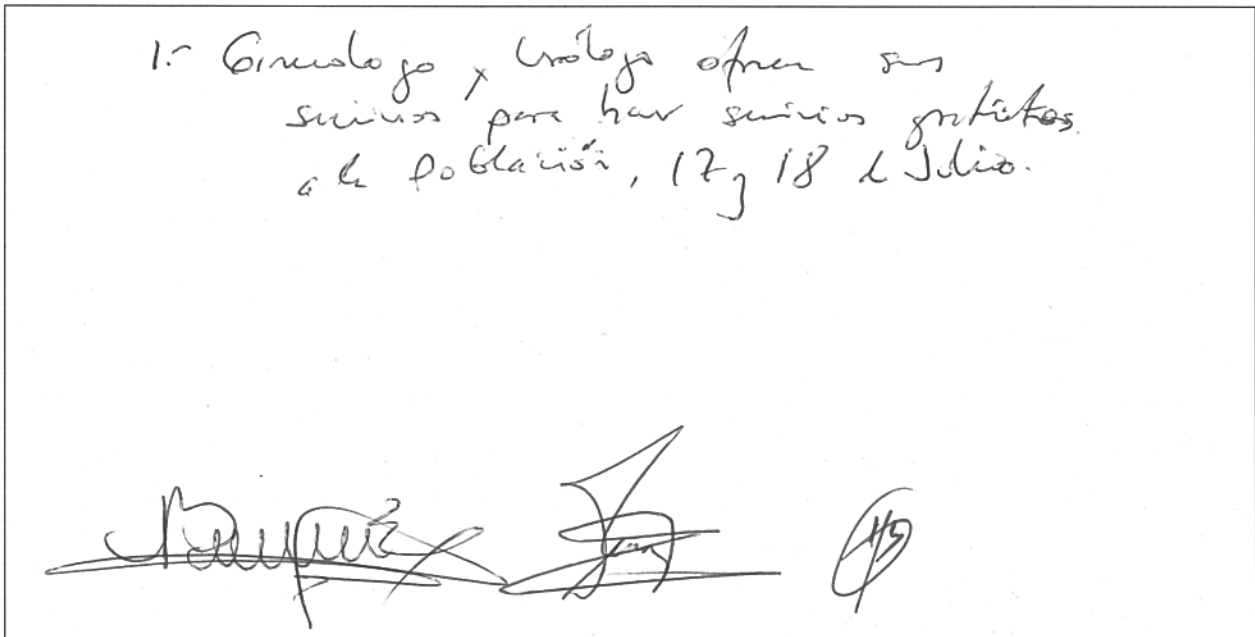 1.- Ginecologo y Urólogo ofrecen sus
servicios para hacer servicios gratuitos
a la Población, 17 y 18 de Julio.